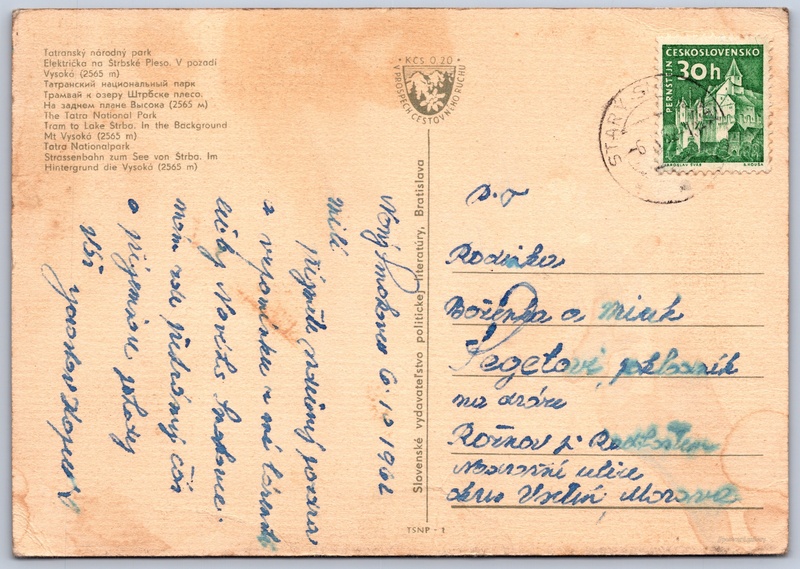 Tatranský národný park
Električka na Štrbské Pleso. V pozadí
Vysoká (2565 m)
Татранский национальный парк
Трамвай к озеру Штрбске плесо.
На заднем плане Высока (2565 м)
The Tatra National Park
Tram to Lake Štrba. In the Background
Mt Vysoká (2565 m)
Tatra Nationalpark
Strassenbahn zum See von Štrba. Im
Hintergrund die Vysoká (2565 m)
KČS 0,20
V PROSPECH CESTOVNÉHO RUCHU
ČESKOSLOVENSKO
30h
PERNŠTEJN
JAROSLAV ŠVÁB
STARÝ S
Slovenské vydavateľstvo politickej literatúry, Bratislava
TSNP - 1
Nový Smokovec 6.10 1962
milí
přijměte srdečný pozdrav
a vzpomínku z mé
Nového Smokovce.
mám zde
a příjemné
Váš
Jaroslav
Rodinka
Boženka a Mirek
Segetovi,
na dráze
Rožnov p. Radhoštěm
Nádražní ulice
okres Vsetín Morava